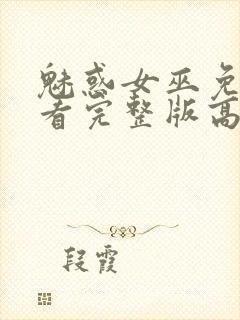 魅惑女巫免
看完整版高
段霞